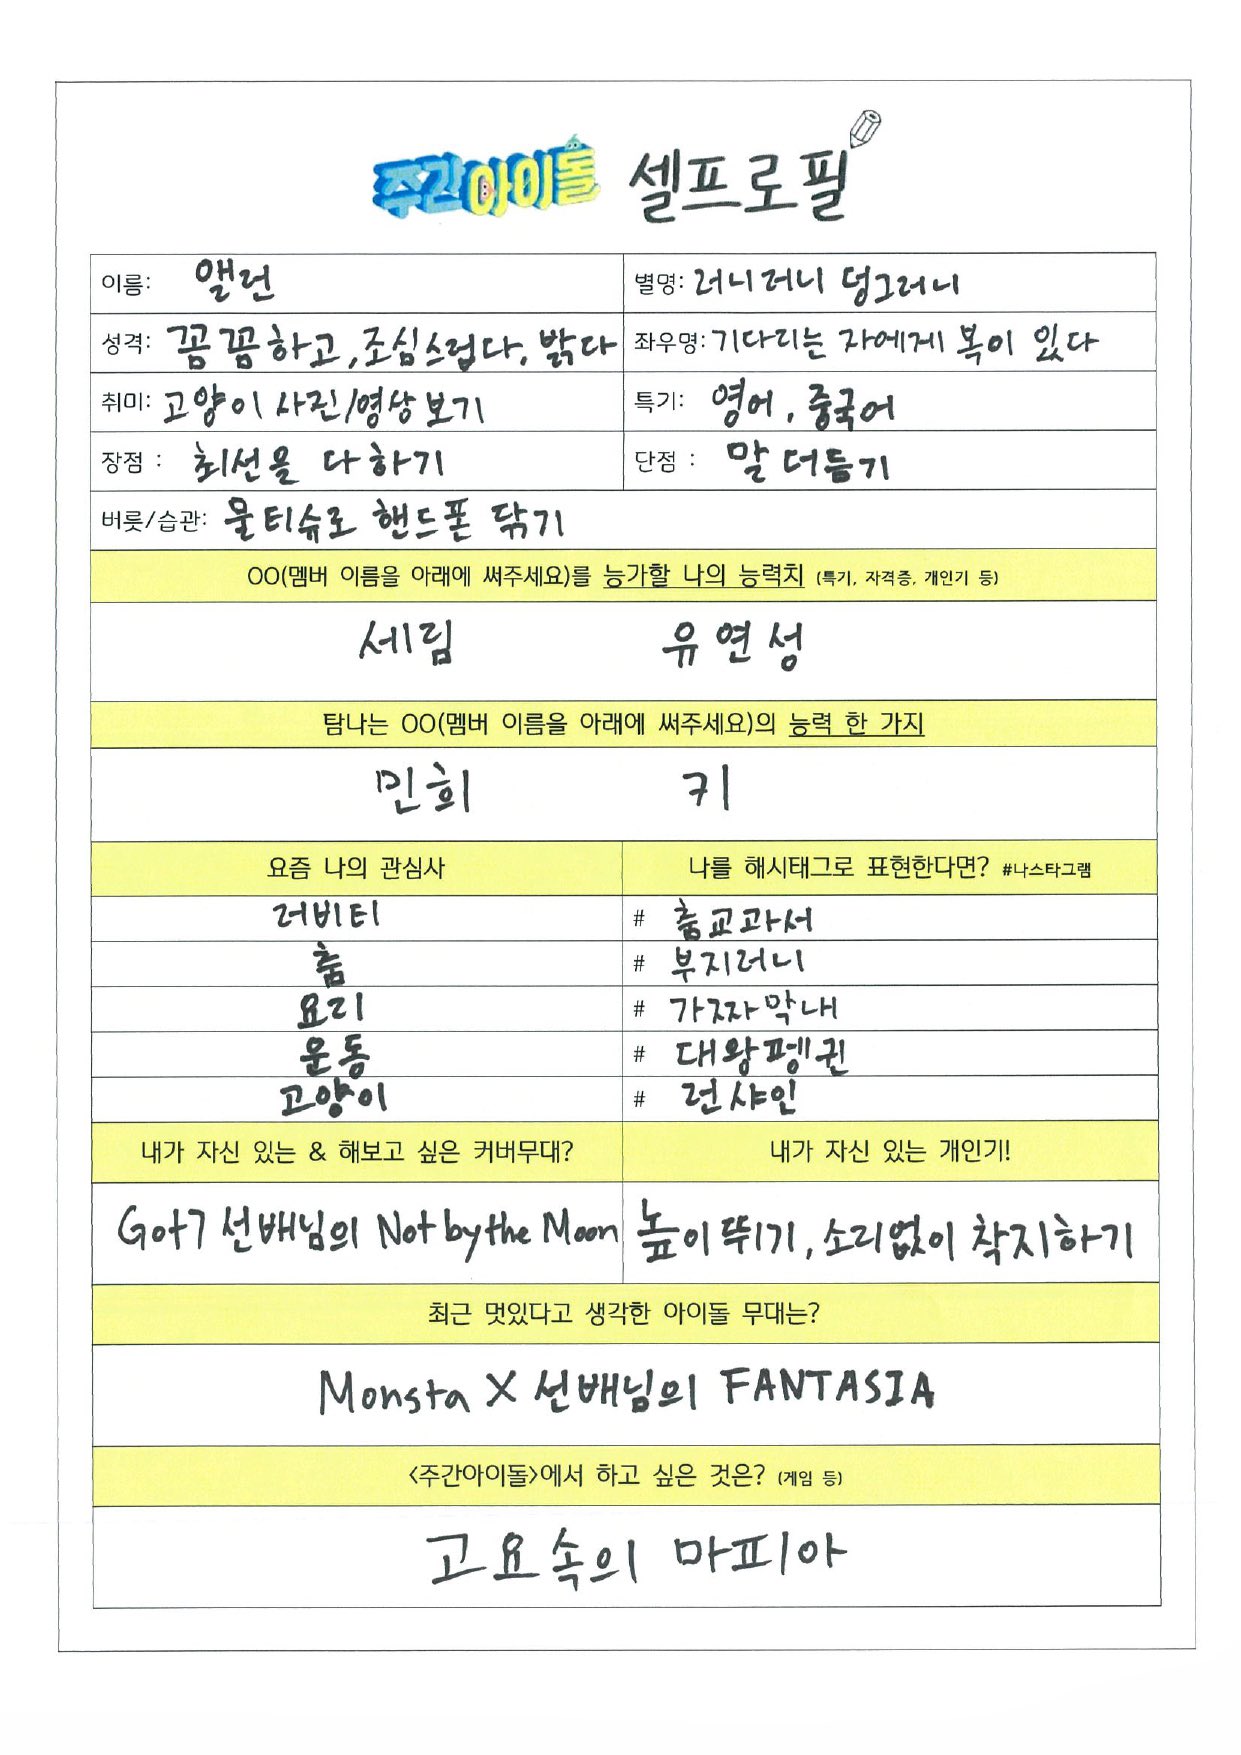 주간아이돌 셀프로필
이름: 앨런 별명: 러니러니 덩그러니
성격: 꼼꼼하고, 조심스럽다, 밝다 좌우명: 기다리는 자에게 복이 있다
취미: 고양이 사진/영상 보기 특기: 영어, 중국어
장점 : 최선을 다하기 단점 : 말 더듬기
버릇/습관: 물티슈로 핸드폰 닦기
OO(멤버 이름을 아래에 써주세요)를 능가할 나의 능력치 (특기, 자격증, 개인기 등)
세림 유연성
탐나는 OO(멤버 이름을 아래에 써주세요)의 능력 한 가지
민희 키
요즘 나의 관심사 나를 해시태그로 표현한다면? #나스타그램
러비티 # 춤교과서
춤 # 부지러니
요리 # 가짜막내
운동 # 대왕펭귄
고양이 # 런샤인
내가 자신 있는 & 해보고 싶은 커버무대? 내가 자신 있는 개인기!
Got7 선배님의 Not by the Moon 높이뛰기, 소리없이 착지하기
최근 멋있다고 생각한 아이돌 무대는?
Monsta X 선배님의 FANTASIA
<주간아이돌>에서 하고 싶은 것은? (게임 등)
고요속의 마피아